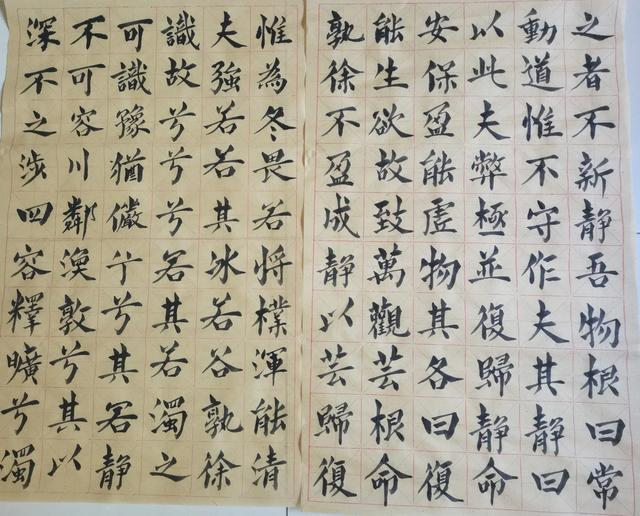 深不可識夫惟
不可識故強為
之容豫兮若冬
涉川猶兮若畏
四鄰儼兮其若
容渙兮若冰將
釋敦兮其若樸
曠兮其若谷渾
兮其若濁孰能
濁以靜之徐清
孰能安以動之
徐生保此道者
不欲盈夫惟不
盈故能弊不新
成致虛極守靜
靜萬物並作吾
以觀其復夫物
芸芸各歸其根
歸根曰靜靜曰
復命復命曰常